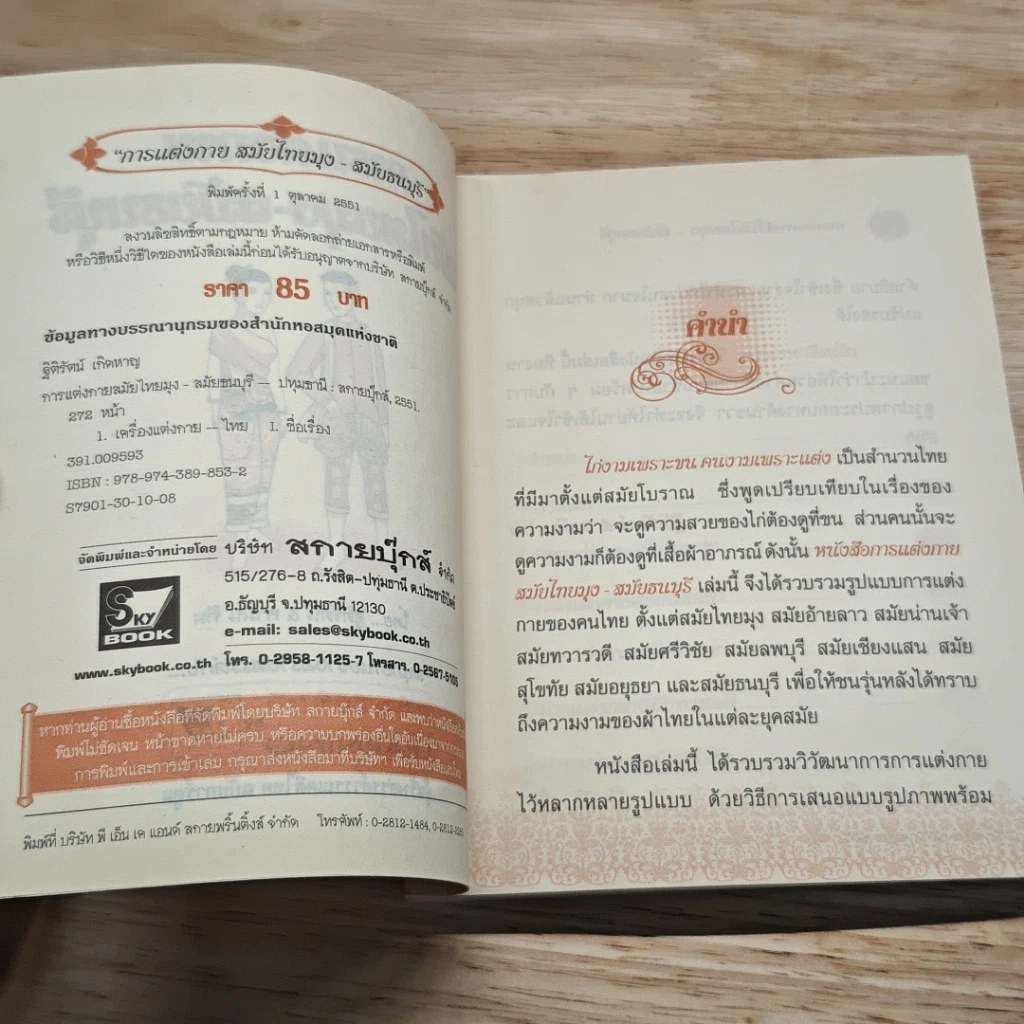 "การแต่งกาย สมัยไทยมุง - สมัยธนบุรี"
พิมพ์ครั้งที่ 1 ตุลาคม 2551
สงวนลิขสิทธิ์ตามกฎหมาย ห้ามคัดลอกถ่ายเอกสารหรือพิมพ์
หรือวิธีหนึ่งวิธีใดของหนังสือเล่มนี้ก่อนได้รับอนุญาตจากบริษัท สกายบุ๊กส์ จำกัด
ราคา 85 บาท
ข้อมูลทางบรรณานุกรมของสำนักหอสมุดแห่งชาติ
ฐิติรัตน์ เกิดหาญ
การแต่งกายสมัยไทยมุง - สมัยธนบุรี — ปทุมธานี : สกายบุ๊กส์, 2551.
272 หน้า
1. เครื่องแต่งกาย — ไทย I. ชื่อเรื่อง
391.009593
ISBN : 978-974-389-853-2
S7901-30-10-08
จัดพิมพ์และจำหน่ายโดย บริษัท สกายบุ๊กส์ จำกัด
515/276-8 ถ.รังสิต-ปทุมธานี ต.ประชาธิปัตย์
อ.ธัญบุรี จ.ปทุมธานี 12130
e-mail: sales@skybook.co.th
SKY BOOK
www.skybook.co.th โทร. 0-2958-1125-7 โทรสาร. 0-2567-5105
หากท่านผู้อ่านซื้อหนังสือที่จัดพิมพ์โดยบริษัท สกายบุ๊กส์ จำกัด และพบว่าหนังสือ
พิมพ์ไม่ชัดเจน หน้าขาดหายไม่ครบ หรือความบกพร่องอื่นใดอันเนื่องมาจาก
การพิมพ์และการเข้าเล่ม กรุณาส่งหนังสือมาที่บริษัทฯ เพื่อรับหนังสือ
พิมพ์ที่ บริษัท พี เอ็น เค แอนด์ สกายพริ้นติ้งส์ จำกัด โทรศัพท์ : 0-2812-1484,
คำนำ
ไก่งามเพราะขน คนงามเพราะแต่ง เป็นสำนวนไทย
ที่มีมาตั้งแต่สมัยโบราณ ซึ่งพูดเปรียบเทียบในเรื่องของ
ความงามว่า จะดูความสวยของไก่ต้องดูที่ขน ส่วนคนนั้นจะ
ดูความงามก็ต้องดูที่เสื้อผ้าอาภรณ์ ดังนั้น หนังสือการแต่งกาย
สมัยไทยมุง - สมัยธนบุรี เล่มนี้ จึงได้รวบรวมรูปแบบการแต่ง
กายของคนไทย ตั้งแต่สมัยไทยมุง สมัยอ้ายลาว สมัยน่านเจ้า
สมัยทวารวดี สมัยศรีวิชัย สมัยลพบุรี สมัยเชียงแสน สมัย
สุโขทัย สมัยอยุธยา และสมัยธนบุรี เพื่อให้ชนรุ่นหลังได้ทราบ
ถึงความงามของผ้าไทยในแต่ละยุคสมัย
หนังสือเล่มนี้ ได้รวบรวมวิวัฒนาการการแต่งกาย
ไว้หลากหลายรูปแบบ ด้วยวิธีการเสนอแบบรูปภาพพร้อม